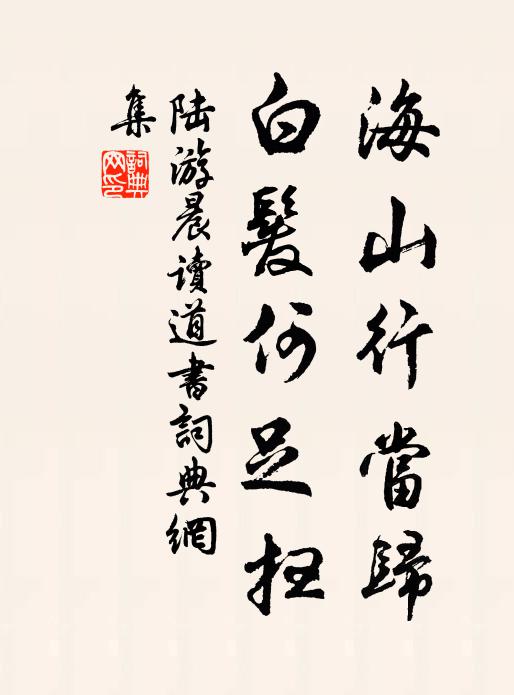 海山行當歸
白髮何足抂
陸游晨讀道書詞典網
集
詞典網印